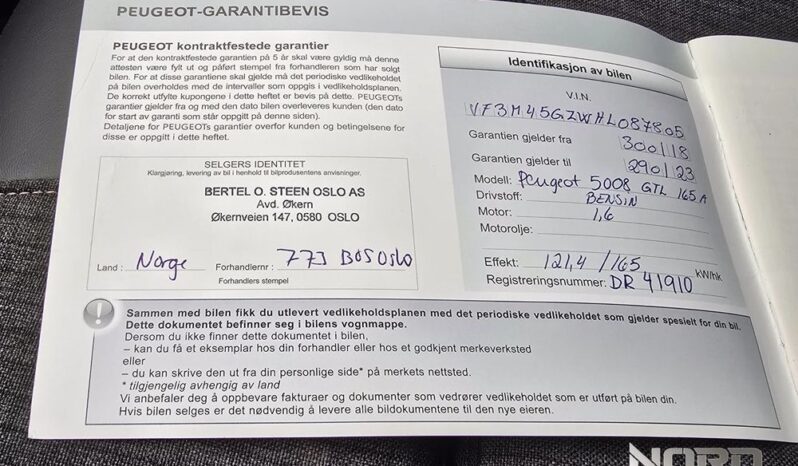 PEUGEOT-GARANTIBEVIS
PEUGEOT kontraktfestede garantier
For at den kontraktfestede garantien på 5 år skal være gyldig må denne
attesten være fylt ut og påført stempel fra forhandleren som har solgt
bilen. For at disse garantiene skal gjelde må det periodiske vedlikeholdet
på bilen overholdes med de intervaller som oppgis i denne planen.
De korrekt utfylte kupongene i dette heftet er bevis på dette. PEUGEOTs
garantier gjelder fra og med den dato bilen overleveres kunden (den dato
for start av garanti som står oppgitt på denne siden).
Detaljene for PEUGEOTs garantier overfor kunden og betingelsene for
disse er oppgitt i dette heftet.
SELGERS IDENTITET
Klargjøring, levering av bil i henhold til bilprodusentens anvisninger.
BERTEL O. STEEN OSLO AS
Avd. Økern
Økernveien 147, 0580 OSLO
Land : Norge Forhandlernr : 773 BOS Oslo
Forhandlers stempel
Identifikasjon av bilen
V.I.N.
VF3M45GZWHL087805
Garantien gjelder fra 300118
Garantien gjelder til 290123
Modell: Peugeot 5008 GTL 165 A
Drivstoff: BENSIN
Motor: 1,6
Motorolje:
Effekt: 121,4 /165 kW/hk
Registreringsnummer: DR 41910
Sammen med bilen fikk du utlevert vedlikeholdsplanen med det periodiske vedlikeholdet som gjelder spesielt for din bil.
Dette dokumentet befinner seg i bilens vognmappe.
Dersom du ikke finner dette dokumentet i bilen,
– kan du få et eksemplar hos din forhandler eller hos et godkjent merkeverksted
eller
– du kan skrive den ut fra din personlige side* på merkets nettsted.
* tilgjengelig avhengig av land
Vi anbefaler deg å oppbevare fakturaer og dokumenter som vedrører vedlikeholdet som er utført på bilen din.
Hvis bilen selges er det nødvendig å levere alle bildokumentene til den nye eieren.
NORD